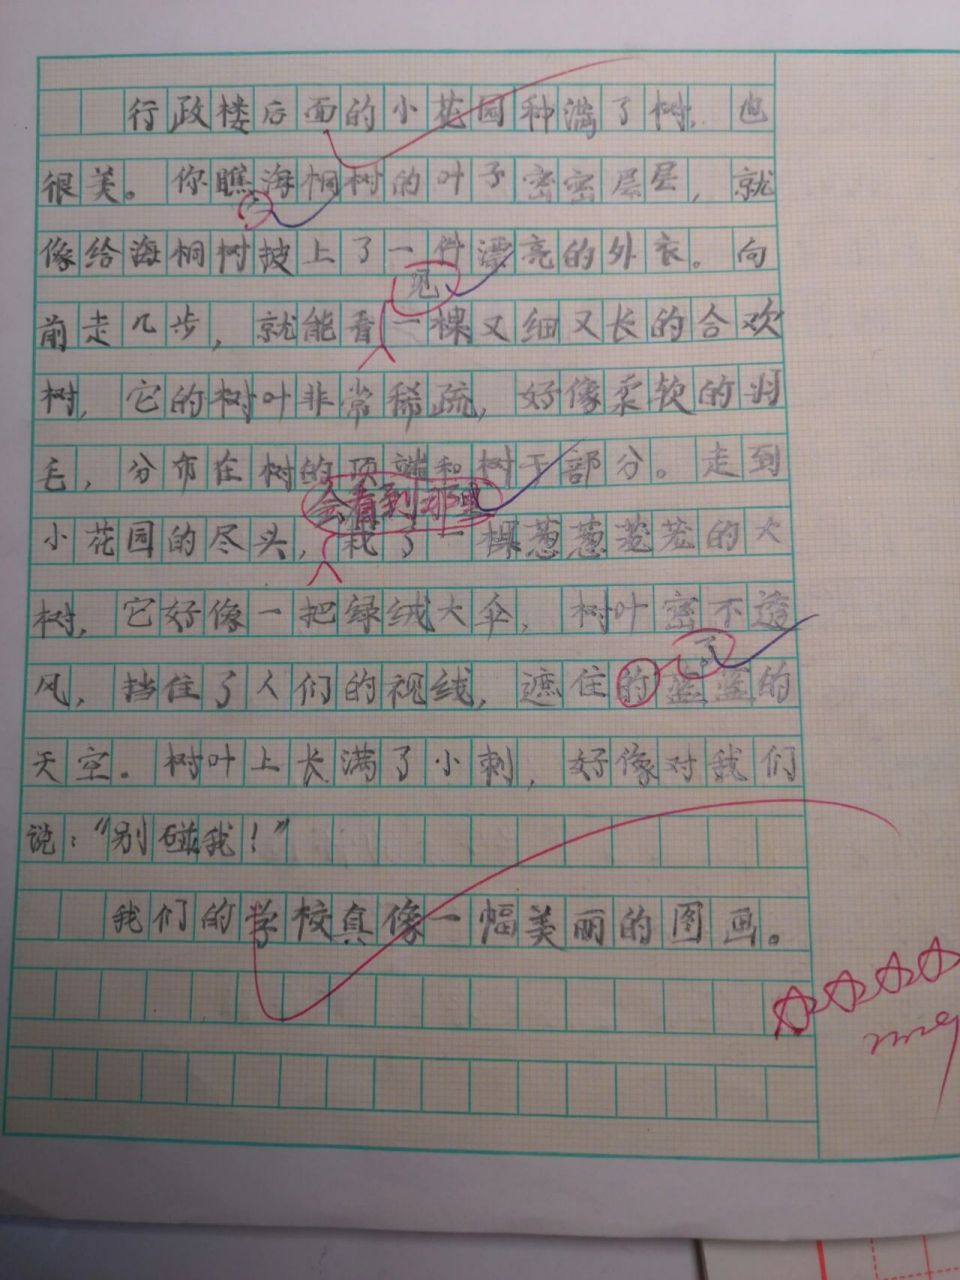 行政楼后面的小花园种满了树，也
很美。你瞧，海桐树的叶子密密层层，就
像给海桐树披上了一件漂亮的外衣。向
见
前走几步，就能看一棵又细又长的合欢
树，它的树叶非常稀疏，好像柔软的羽
毛，分布在树的顶端和树干部分。走到
会看到那里
小花园的尽头，栽了一棵葱葱茏茏的大
树，它好像一把绿绒大伞，树叶密不透
了
风，挡住了人们的视线，遮住的蓝蓝的
天空。树叶上长满了小刺，好像对我们
说：“别碰我！”
我们的学校真像一幅美丽的图画。